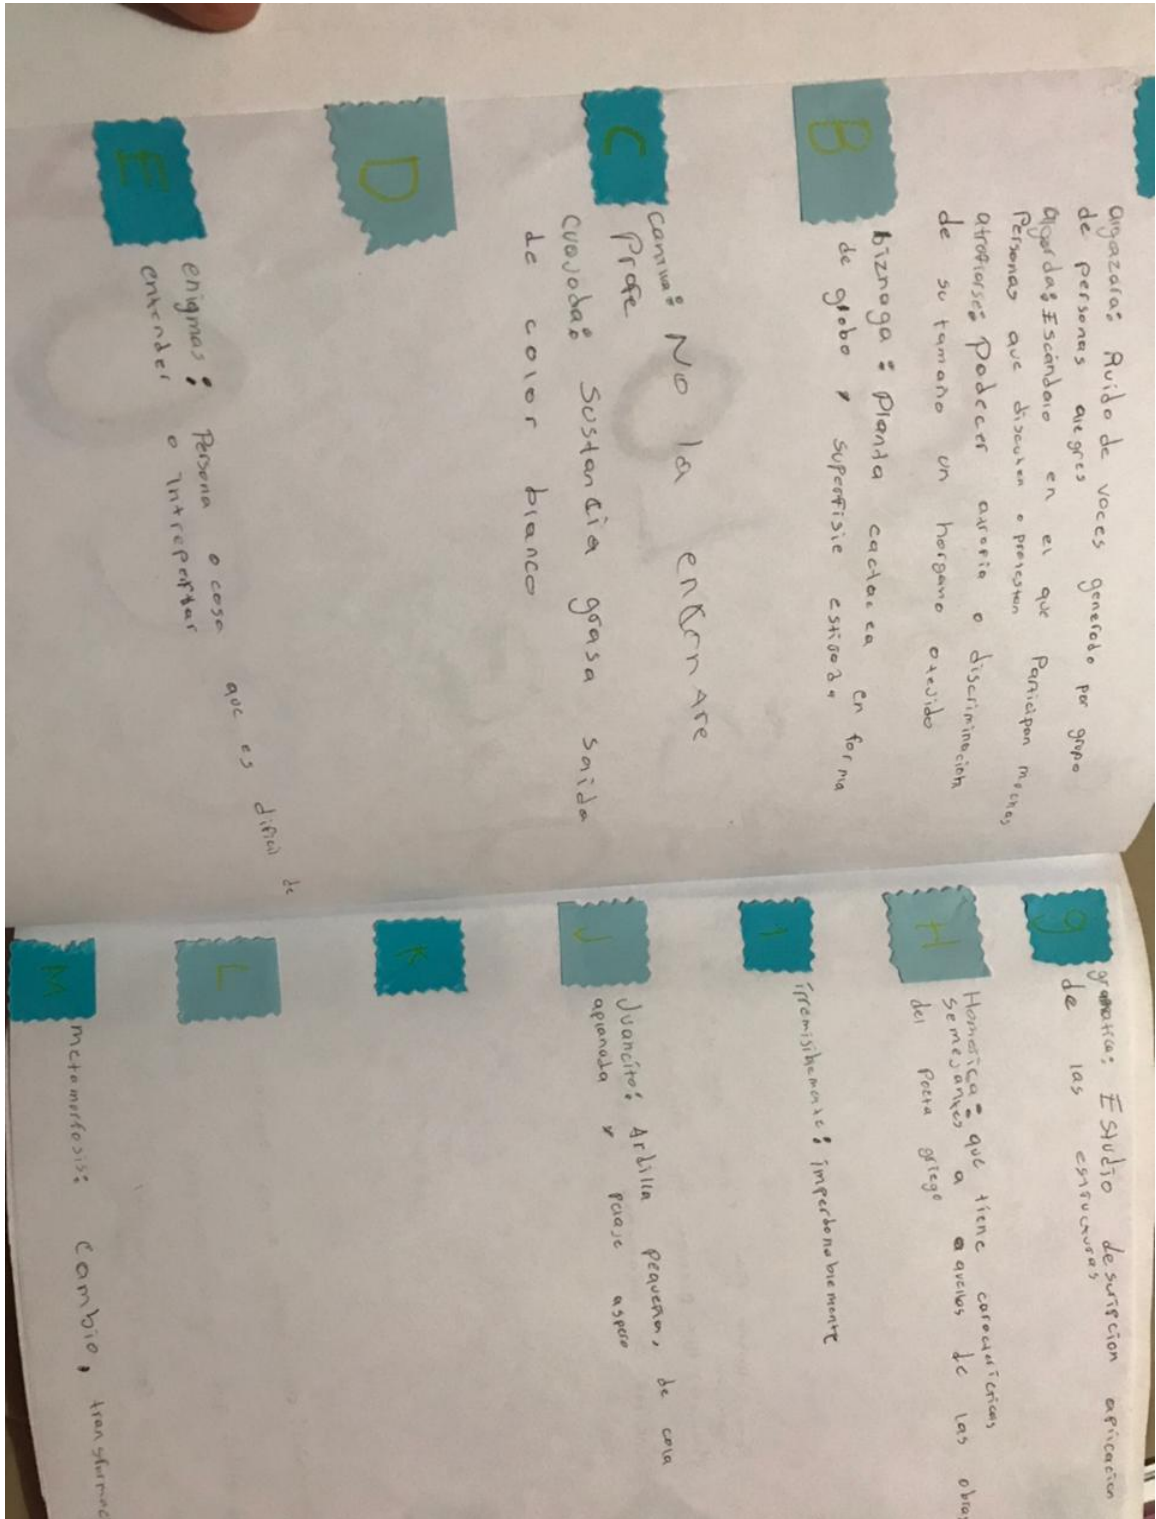 algazara: Ruido de voces generado por grupo
de personas alegres
algarda: Escándalo en el que Participan muchas
Personas que discuten o protestan
atrofiarse: Padecer atrofia o discriminacion
de su tamaño un horgano otejido
B
biznaga: Planta cactacea en forma
de globo y superfisie
C
No la enkontre
Profe
cuajada: Sustancia grasa salida
de color blanco
D
E
enigmas: Persona o cosa que es dificil de
entender o intrepertar
g
gramatica: Estudio descripcion aplicacion
de las estructuras
H
Homerica: que tiene
semejantes a aquellos de las obras
del Poeta griego
I
imperdonablemente
J
Juancito: Ardilla pequeña, de cola
aplanada y pelaje aspero
K
L
M
metamorfosis: Cambio,